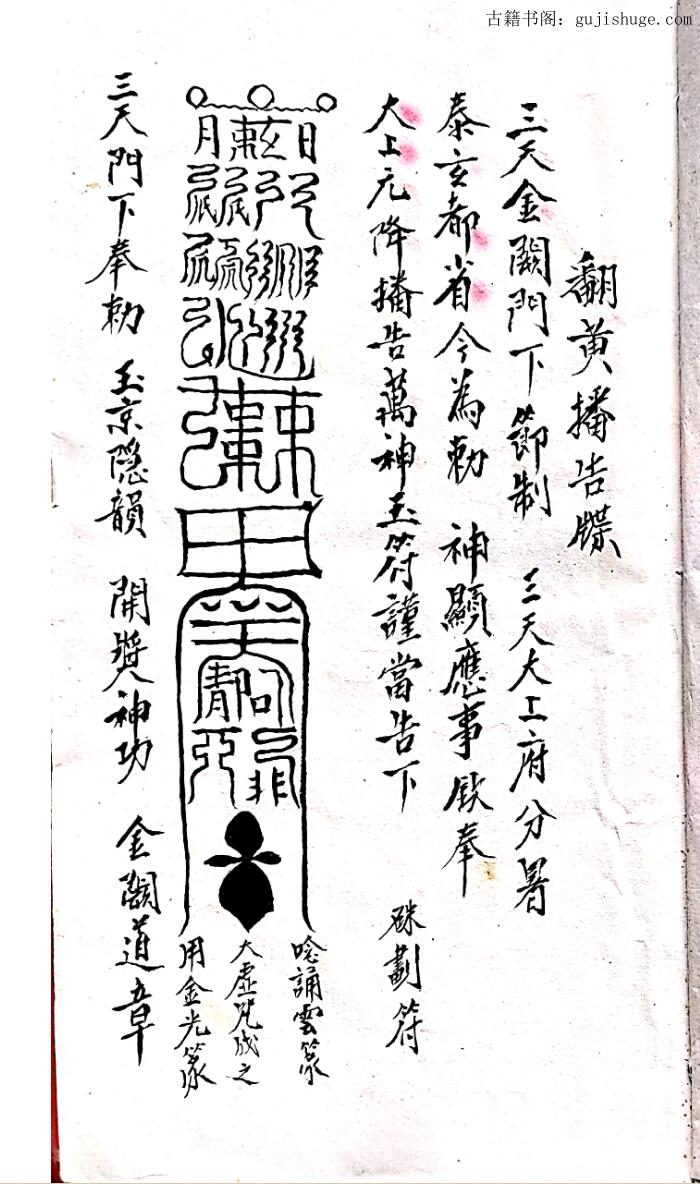 古籍书阁：gujishuge.com
翻黄播告牒
三天金闕門下節制 三天大上府分署
泰玄都省今為勅 神顯應事欽奉
大上元降播告萬神玉符謹當告下 硃劃符
唸誦雲篆
大虛咒成之
用金光篆
三天門下奉勅 玉京隱韻 開獎神功 金闕道章